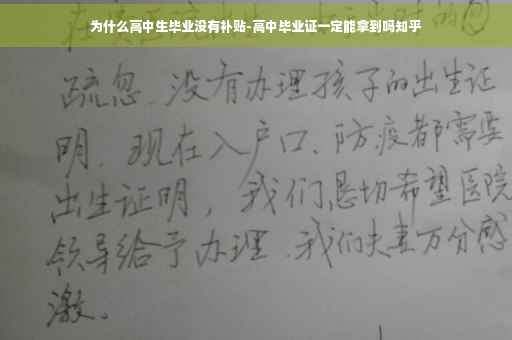 为什么高中生毕业没有补贴-高中毕业证一定能拿到吗知乎
疏忽、没有办理孩子的出生证
明、现在入户口、防疫都需要
出生证明，我们恳切希望医院
领导给予办理、我们夫妻万分感
激。